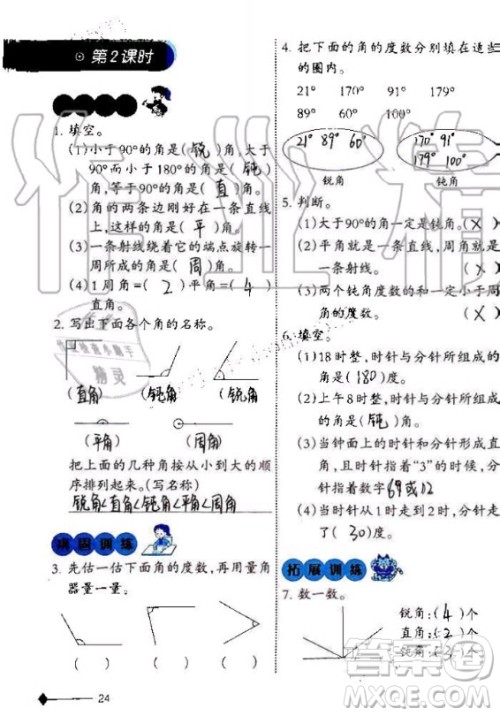 第2课时
1. 填空。
(1)小于90°的角是(锐)角,大于
90°而小于180°的角是(钝)
角,等于90°的角是(直)角。
(2)角的两条边刚好在一条直线
上,这样的角是(平)角。
(3)一条射线绕着它的端点旋转一
周所成的角是(周)角。
(4)1周角=(2)平角=(4)
直角。
2. 写出下面各个角的名称。
(直角) (钝角) (锐角)
(平角) (周角)
把上面的几种角按从小到大的顺
序排列起来。(写名称)
锐角<直角<钝角<平角<周角
巩固训练
3. 先估一估下面角的度数,再用量角
器量一量。
24
4. 把下面的角的度数分别填在适
的圈内。
21° 170° 91° 179°
89° 60° 100°
21° 89° 60°
170° 91°
179° 100°
锐角 钝角
5. 判断。
(1)大于90°的角一定是钝角。(X)
(2)平角就是一条直线,周角就是
一条射线。 (X)
(3)两个钝角度数的和一定小于周
角的度数。 (X)
6. 填空。
(1)18时整,时针与分针所组成的
角是(180)度。
(2)上午8时整,时针与分针所组
的角是(钝)角。
(3)当钟面上的时针与分针形成直
角,且时针指着“3”的时候,分
针指着数字(9或12)
(4)当时针从1时走到2时,分针走
了( 30)度。
拓展训练
7. 数一数。
锐角:(4)个
直角:(2)个
钝角:(3)个
作业精灵
答案圈
MXQE.COM